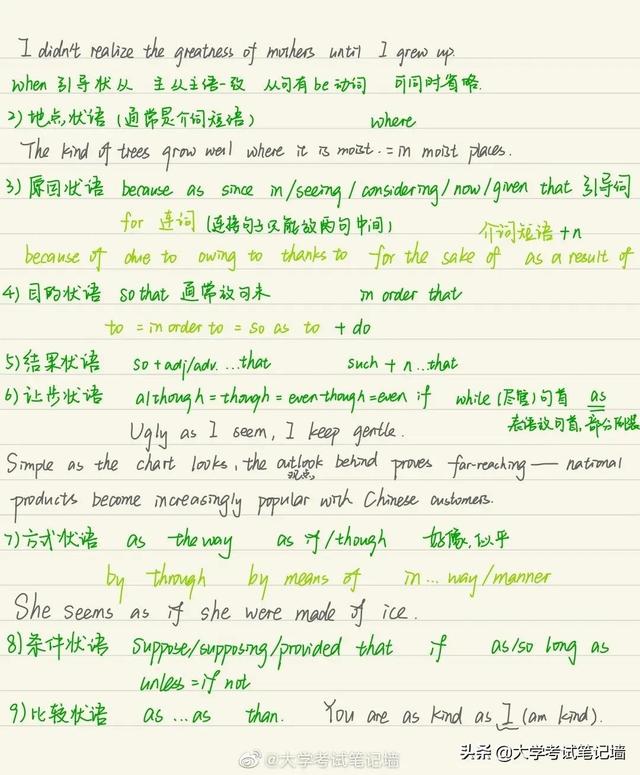 I didn't realize the greatness of mothers until I grew up.
when 引导状从 主从主语一致 从句有be动词 可同时省略.
2) 地点状语 (通常是介词短语) where
The kind of trees grow well where it is moist. = in moist places.
3) 原因状语 because as since in/seeing/considering/now/given that 引导词
for 连词 (连接句子只能放两句中间) 介词短语+n
because of due to owing to thanks to for the sake of as a result of
4) 目的状语 so that 通常放句末 in order that
to = in order to = so as to + do
5) 结果状语 so + adj/adv. ...that such + n...that
6) 让步状语 although = though = even though = even if while (尽管) 句首 as
表语放句首, 部分倒装
Ugly as I seem, I keep gentle.
Simple as the chart looks, the outlook behind proves far-reaching — national
观点
products become increasingly popular with Chinese customers.
7) 方式状语 as the way as if/though 好像,似乎
by through by means of in... way/manner
She seems as if she were made of ice.
8) 条件状语 suppose/supposing/provided that if as/so long as
unless = if not
9) 比较状语 as ... as than. You are as kind as I (am kind).
@大学考试笔记墙
头条 @大学考试笔记墙